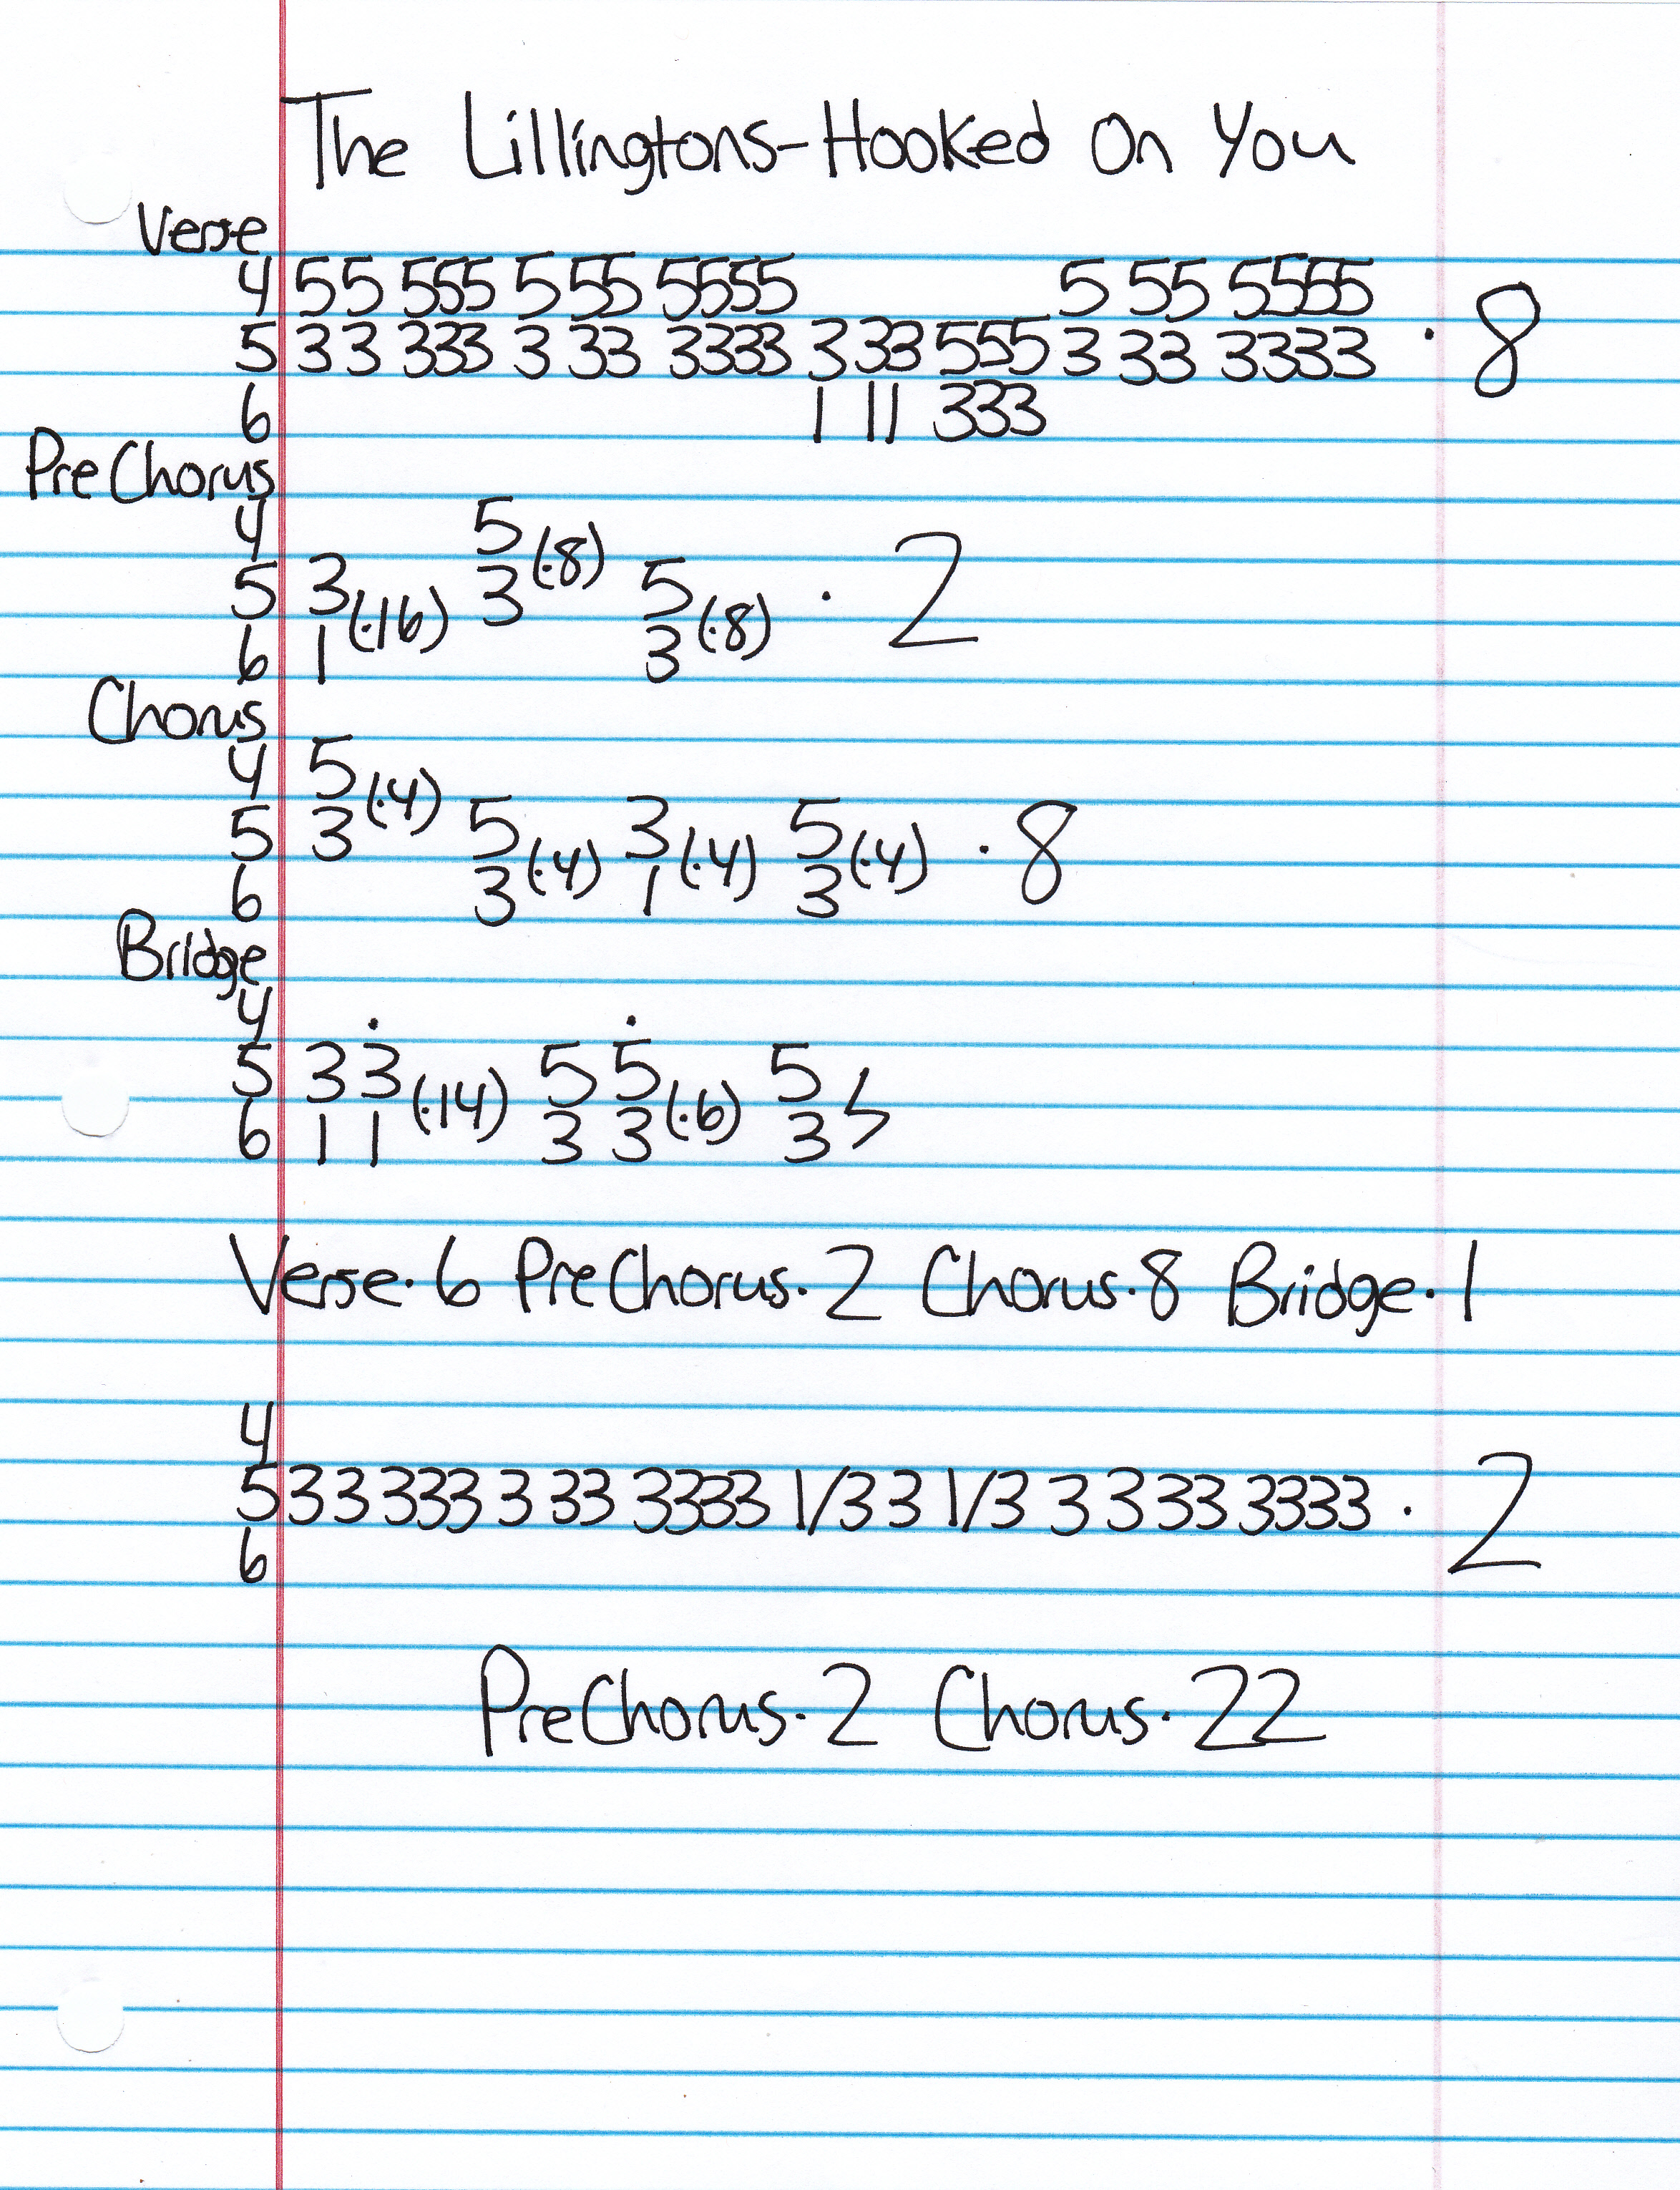 The Lillingtons-Hooked On You
Verse
4 55 555 5 55 5555 5 55 5555
5 3 3 333 3 33 3333 3 33 555 3 33 3333 · 8
6 1 11 333
PreChorus
4 5
5 3 (·16) 3 (·8) 5 · 2
6 1 3 (·8)
Chorus
4 5
5 3 (·4) 5 3 5 · 8
6 3 (·4) 1 (·4) 3 (·4)
Bridge
4
5 3 3̇ (·14) 5 5̇ (·6) 5
6 1 1 3 3 3
Verse·6 PreChorus·2 Chorus·8 Bridge·1
4
5 3 3 333 3 33 3333 1/3 3 1/3 3 3 333 3333 · 2
6
PreChorus·2 Chorus·22